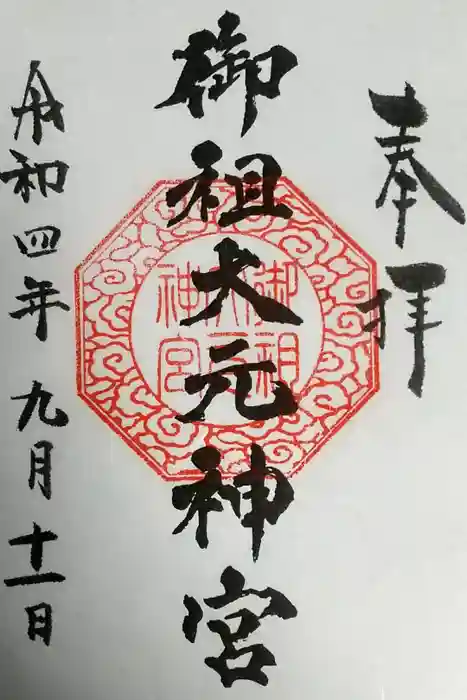 奉拝
御祖大元神宮
御祖
大元
神宮
令和四年九月十一日